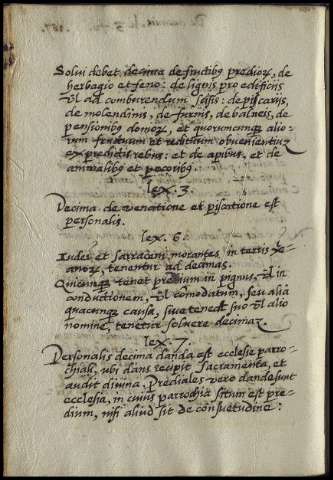 Solvi debet decima de fructibꝰ predioꝝ, de
herbagio et feno: de lignis pro edificiis
vl ad comburendum scisis: de piscariis,
de molendinis, de furnis, de balneis, de
pensionibꝰ domoꝝ, et quorumcumqꝫ alio-
rum fructuum et redituum obvenientiuꝫ
ex predictis rebus: et de apibus, et de
animalibꝰ et pecoribꝰ
lex. 3.
Decima de venatione et piscatione est
personalis.
lex. 6
Iudei et sarraceni morantes in terris
tenentur ad decimas.
Quicunqꝫ tenet predium in pignus, vl in
conductionem, vl comodatum, seu alia
quacunqꝫ causa, sive teneat suo vl alio
nomine, tenetur solvere decimaꝫ.
lex. 7.
Personalis decima danda est ecclesie parro-
chiali, ubi dans recipit sacramenta, et
audit divina, Prediales vero dande sunt
ecclesia, in cuius parrochia situm est pre-
dium, nisi aliud sit de consuetudine: